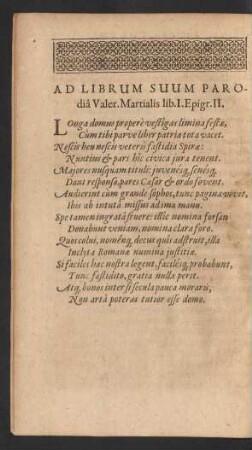 AD LIBRUM SUUM PARO-
diâ Valer. Martialis lib. I. Epigr. II.
Longa domus properè vestigas limina festæ,
Cum tibi parve liber patria tota vacet.
Nescis heu nescis veterū fastidia Spiræ:
Nuntius & pars hîc civica jura tenent.
Majores nusquam tituli: juvenésq, senésq,
Dant responsa, pares Cæsar & ordo fovent.
Audierint cùm grande sophos, tunc pagina vovet,
Ibis ab intutâ missus ad ima manu.
Spe tamen ingratâ fruere: illîc nomina forsan
Donabunt veniam, nomina clara foro.
Quos colus, noménq, decus quîs adstruit, illa
Inclyta Romanæ numina justitiæ.
Si faciles hæc nostra legent, facilésq, probabunt,
Tunc fastidito, gratia nulla perit.
Atq, bonos inter si secula pauca moraris,
Non artâ poteras tutior esse domo.